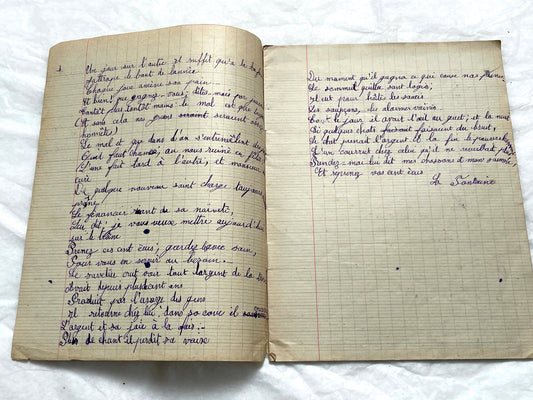 Un jour sur l'autre il suffit qu'a la fin
J'attrape le bout de l'année
Chaque jour amène son pain.
Et bien que gagnez-vous, dites moi par journée
Tantôt plus tantôt moins le mal est que
(Et sans cela nos gains seraient assez
honnêtes)
Le mal est que dans l'an s'entremêlent des
qu'il faut chomer, on nous ruine en
L'une fait tard à l'autre, et monsieur
curé
De quelque nouveau saint charge toujours
prône
Le financeur riant de sa naïveté,
Lui dit je vous veux mettre aujourd'hui
sur le trône
Prenez ces cent écus; gardez les avec soin,
Pour vous en servir au besoin.
Le savetier crut voir tout l'argent de la
Avait depuis plus de cent ans
Produit par l'usage des gens
Il retourne chez lui dans sa cave il
L'argent et sa joie à la fois:-
Plus de chant il perdit sa voix
Du moment qu'il gagna ce qui cause nos peines.
Le sommeil quitta son logis,
Il eut pour hôtes les soucis
Les soupçons, les alarmes vaines.
Tout le jour il avait l'œil au guet; et la nuit
Si quelque chats faisait du bruit,
Le chat prenait l'argent à la fin le pauvre
S'en courrut chez celui qu'il ne reveillait plus
Rendez-moi lui dit mes chansons et mon somme,
Et reprenez vos cent écus
La Fontaine